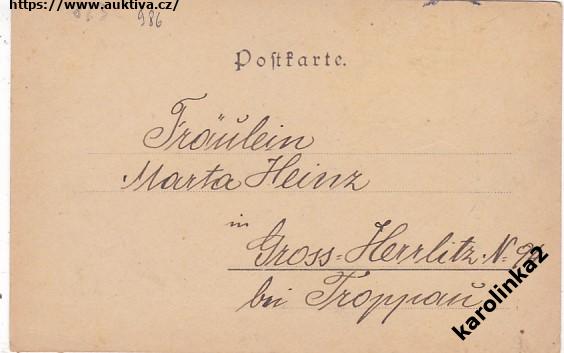 https://www.auktiva.cz/
986
Postkarte.
Fräulein
Marta Heinz
in
Gross-Herrlitz N.
bei Troppau
karolinka2